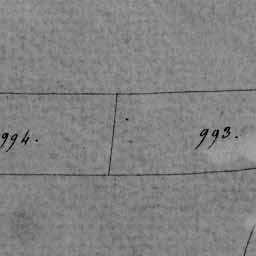 994. 993.